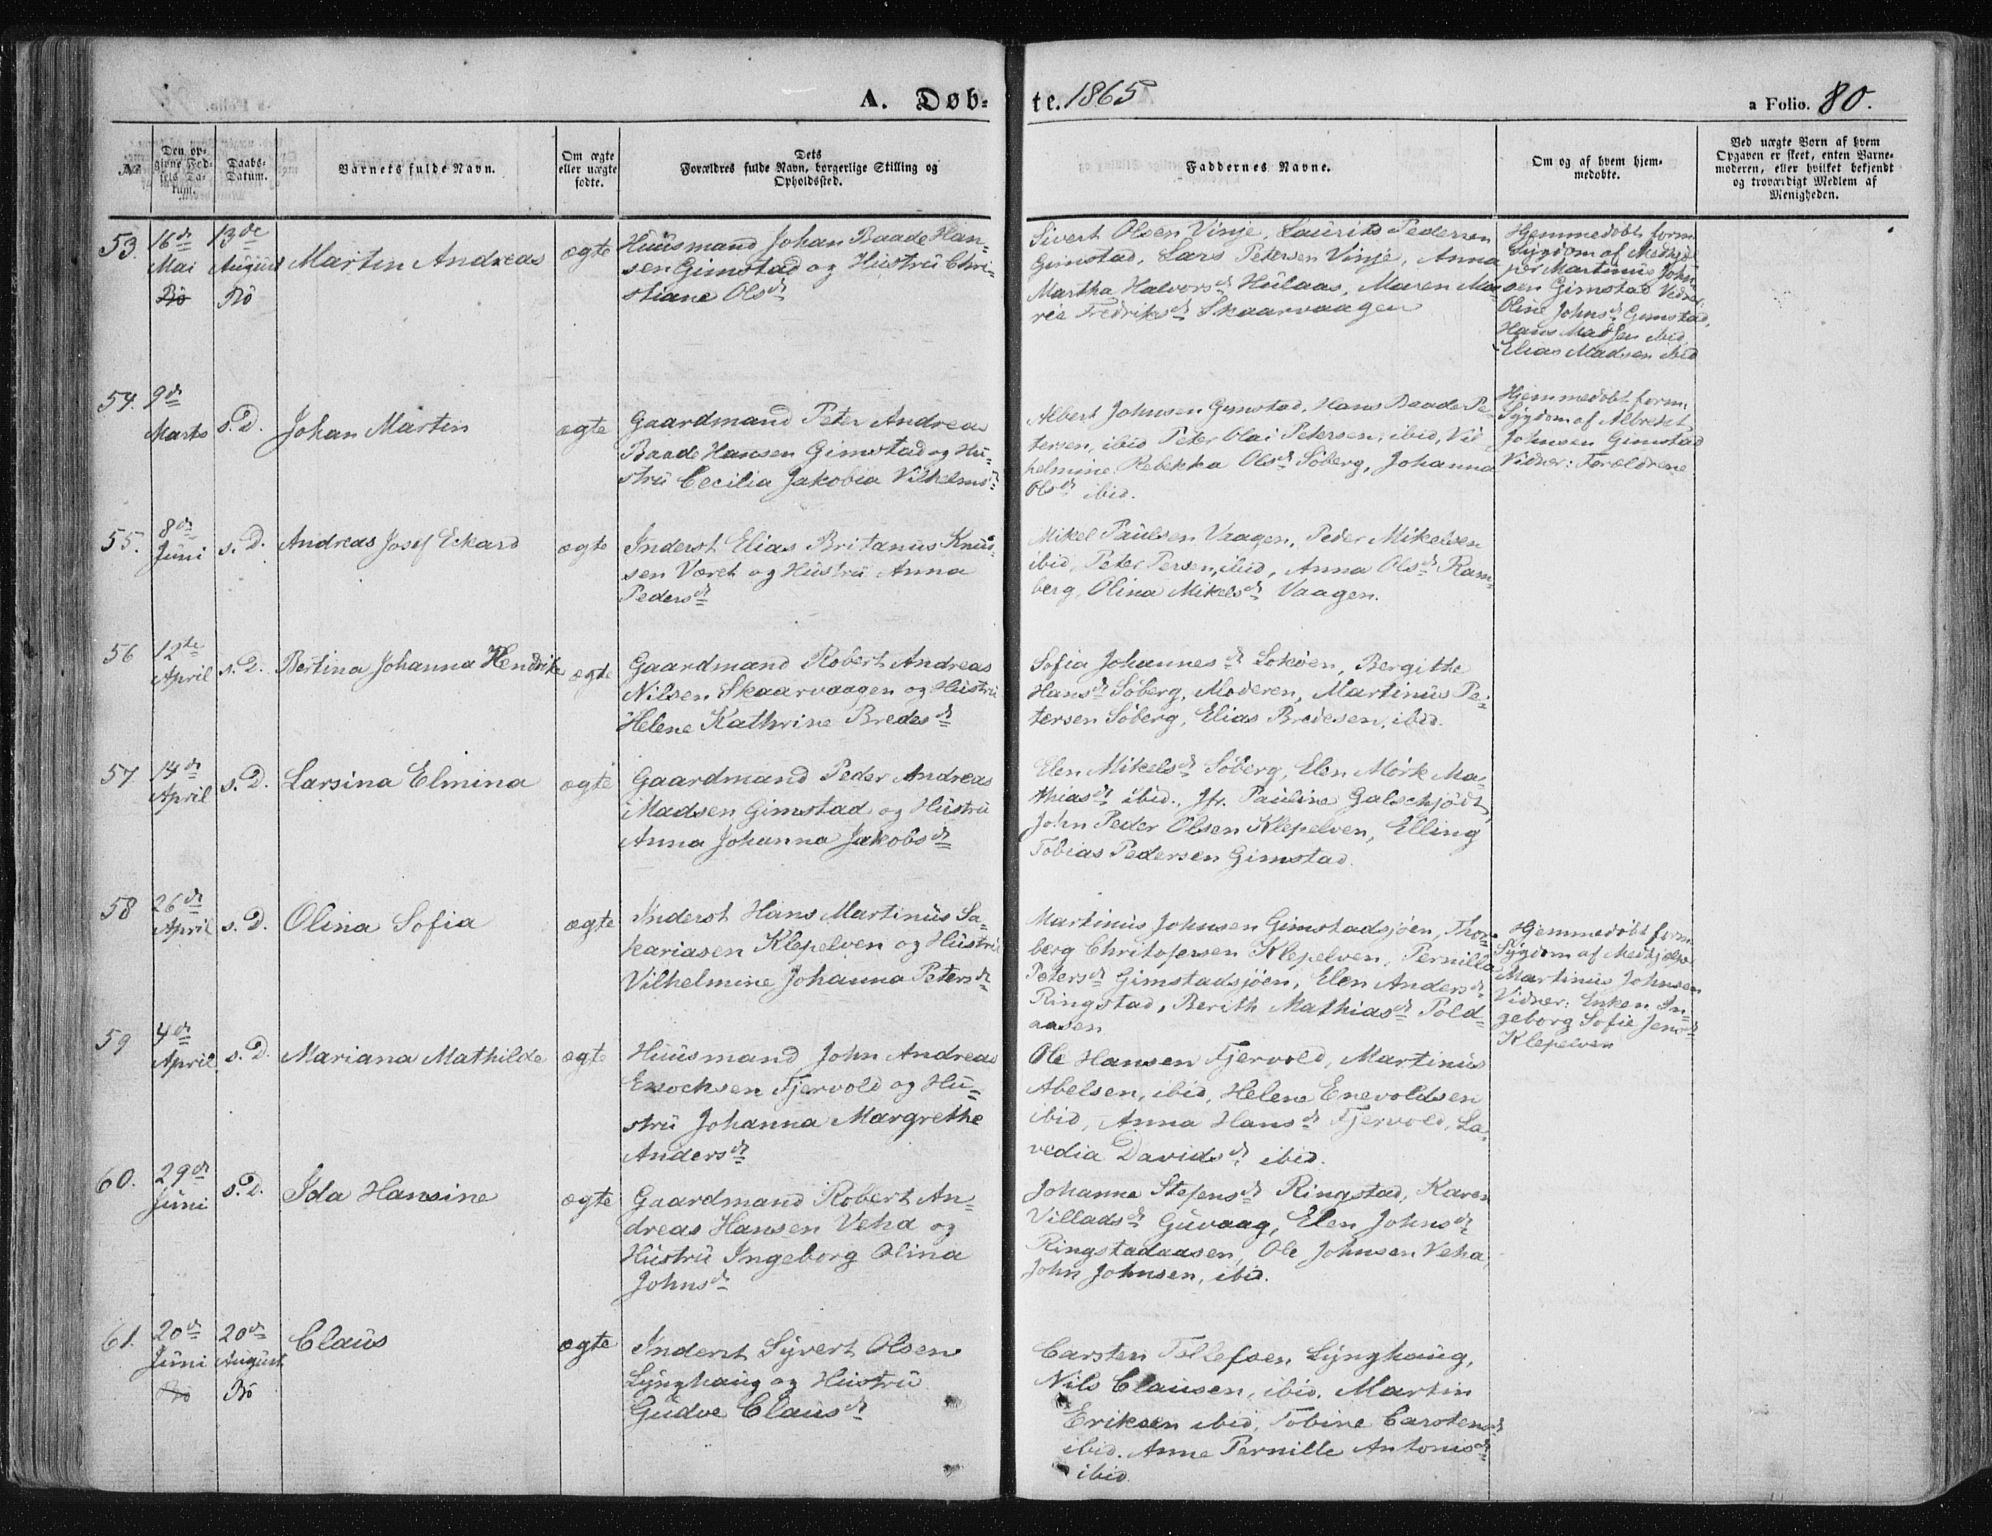 A. Døb-
te. 1865
a Folio. 80.
No
Den op-
givne Fød-
sels Da-
tum.
Daabs-
Datum.
Barnets fulde Navn.
Om ægte
eller uægte
fødte.
Dets
Forældres fulde Navn, borgerlige Stilling og
Opholdssted.
Faddernes Navne.
Om og af hvem hjem-
medøbte.
Ved uægte Børn af hvem
Opgaven er skeet, enten Barne-
moderen, eller hvilket bekjendt
og troværdigt Medlem af
Menigheden.
53.
16de
Mai
Bö
13de
August
Bö
Martin Andreas
ægte
Huusmand Johan Baade Han-
sen Gimstad og Hustru Chri-
stiane Olsdr
Sivert Olsen Vinje, Laurits Pedersen
Gimstad, Lars Petersen Vinje, Anna
Martha Halvorsdr Hulaas, Maren Ma-
rie Fredriksdr Skaarvaagen
Hjemmedöbt form.
Sygdom af Medhjæl-
per Martinus John-
sen Gimstad Vidner
Oline Johnsdr Gimstad,
Hans Madsen ibid
Elias Madsen ibid
54.
9de
Marts
s. D.
Johan Martin
ægte
Gaardmand Peter Andreas
Baade Hansen Gimstad og Hu-
stru Cecilia Jakobia Vilhelmsdr
Albert Johnsen Gimstad, Hans Baade Pe-
tersen, ibid Peter Olai Petersen, ibid, Vil-
helmine Rebekka Olsdr Söberg, Johanna
Olsdr ibid.
Hjemmedöbt form.
Sygdom af Albreht
Johnsen Gimstad
Vidner: Forældrene
55.
8de
Juni
s. D.
Andreas Josef Eckard
ægte
Inderst Elias Britanus Knud-
sen Været og Hustru Anna
Pedersdr
Mikel Paulsen Vaagen, Peder Mikelsen
ibid, Peter Persen, ibid, Anna Olsdr Ram-
berg, Olina Mikelsdr Vaagen.
56
12te
April
s. D.
Bertina Johanna Hendrike
ægte
Gaardmand Robert Andreas
Nilsen Skaarvaagen og Hustru
Helene Kathrine Bredesdr
Sofia Johannesdr Lokøen, Bergithe
Hansdr Söberg, Moderen, Martinus Pe-
tersen Söberg, Elias Bredesen, ibid.
57
14de
April
s. D.
Larsina Elmina
ægte
Gaardmand Peder Andreas
Madsen Gimstad og Hustru
Anna Johanna Jakobsdr
Elen Mikelsdr Söberg, Elen Mörk Ma-
thiasdr ibid., Jfr. Pauline Galschjödt,
John Peder Olsen Klepelven, Elling
Tobias Pedersen Gimstad.
58
26de
April
s. D.
Olina Sofia
ægte
Inderst Hans Martinus Sa-
kariasen Klepelven og Hustru
Vilhelmine Johanna Petersdr
Martinus Johnsen Gimstadsjöen, Thor-
berg Christofersen Klepelven, Pernilla
Petersdr Gimstadsjöen, Elen Andersdr
Ringstad, Berith Mathiasdr Pold-
aasen
Hjemmedöbt form.
Sygdom af Medhjælper
Martinus Johnsen
Vidner: Enken In-
geborg Sofie Jensdr
Klepelven
59
4de
April
s. D.
Mariana Mathilde
ægte
Huusmand John Andreas
Enochsen Fjervold og Hu-
stru Johanna Margrethe
Andersdr
Ole Hansen Fjervold, Martinus
Abelsen, ibid, Helene Enevoldsen
ibid, Anna Hansdr Fjervold, La-
vedia Davidsdr ibid.
60.
29de
Juni
s. D.
Ida Hansine
ægte
Gaardmand Robert An-
dreas Hansen Veha og
Hustru Ingeborg Olina
Johnsdr
Johanna Stefensdr Ringstad, Karen
Villadsdr Guvaag, Elen Johnsdr
Ringstadaasen, Ole Johnsen Veha,
John Johnsen, ibid.
61.
20de
Juni
Bö
20de
August
Bö
Claus
ægte
Inderst Syvert Olsen
Lynghaug og Hustru
Gudve Clausdr
Carsten Tollefsen Lynghaug,
Nils Clausen, ibid. Martin
Eriksen ibid, Tobine Carstensdr
ibid. Anne Pernille Antonisdr
ibid.